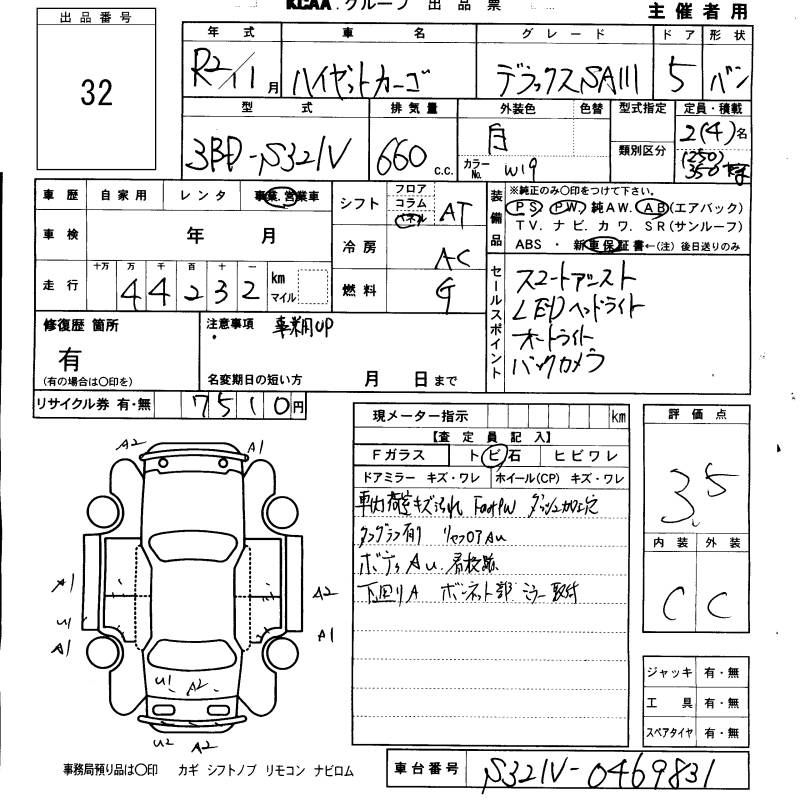 KCAA.グループ 出品票
主催者用
出品番号
32
年式 車名 グレード ドア 形状
R2/11月 ハイゼットカーゴ デラックスSAIII 5 バン
型式 排気量 外装色 色替 型式指定 定員・積載
3BD-S321V 660 c.c. 白 類別区分 2(4)名
カラーNo. W19 (250) 350
車歴 自家用 レンタ 事業.営業車
車検 年 月
走行 十万 万 千 百 十 一
44232 km マイル
シフト フロア コラム パネル AT
冷房 AC
燃料 G
装備品
※純正のみ○印をつけて下さい。
PS. PW. 純AW. AB(エアバック)
TV. ナビ. カワ. SR(サンルーフ)
ABS ・ 新車保証書←(注) 後日送りのみ
セールスポイント
スマートアシスト
LEDヘッドライト
オートライト
バックカメラ
修復歴 箇所
有
(有の場合は○印を)
注意事項 事業用UP
名変期日の短い方 月 日まで
リサイクル券 有・無 7510円
現メーター指示 km
【査定員記入】
Fガラス トビ石 ヒビワレ
ドアミラー キズ・ワレ ホイール(CP) キズ・ワレ
車内荷室キズ汚れ ダッシュ加工穴
リヤフロアAu
ボディAu
下回りA ボンネット部ミラー取付
評価点
3.5
内装 外装
C C
ジャッキ 有・無
工具 有・無
スペアタイヤ 有・無
A2 A1
A1 A2
U1
A1 A1
U1 A2
U2 A2
事務局預り品は○印 カギ シフトノブ リモコン ナビロム
車台番号 S321V-0469831